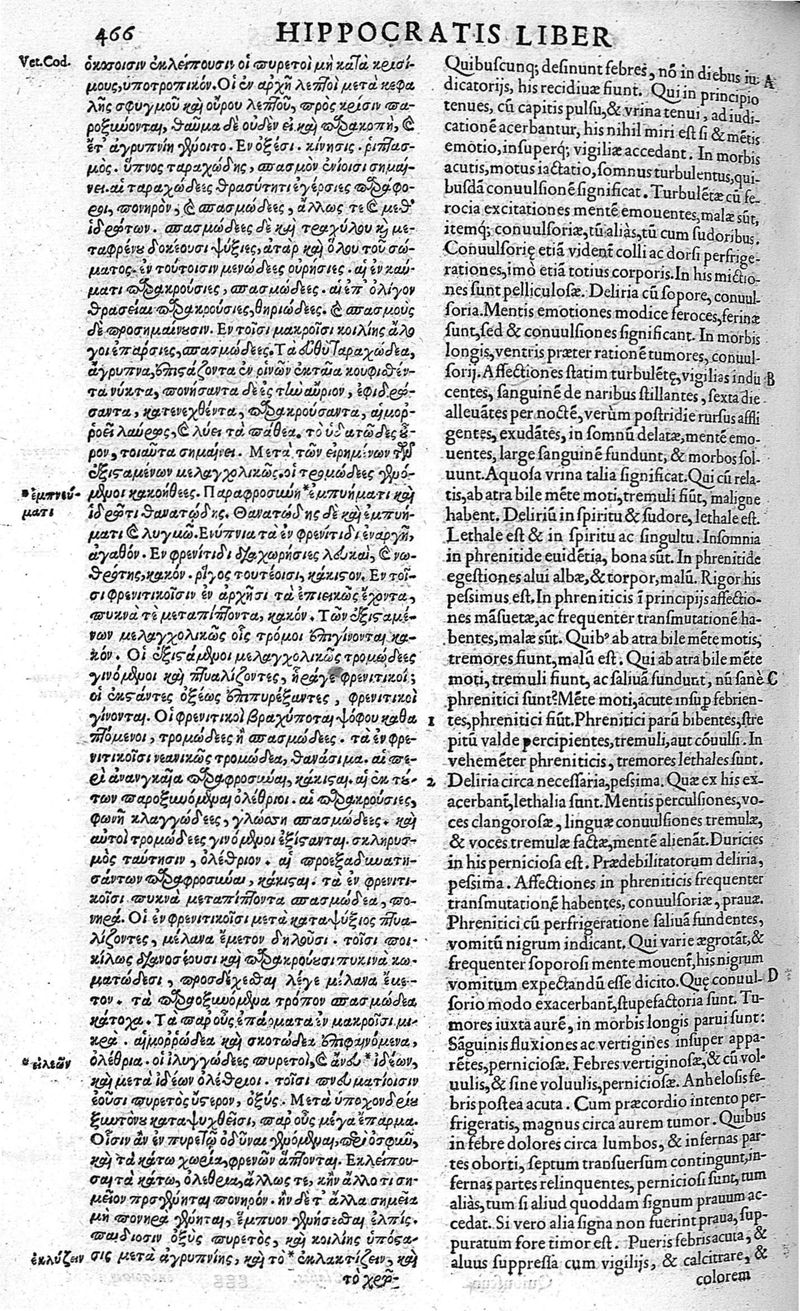 466 HIPPOCRATIS LIBER
Vet. Cod.
ὁκόσοισιν ἐκλείπουσιν οἱ πυρετοὶ μὴ κατὰ κρισί-
μους, ὑποτροπικόν. Οἱ ἐν ἀρχῇ λεπτοὶ μετὰ κεφα
λῆς σφυγμοῦ καὶ οὔρου λεπτοῦ, πρὸς κρίσιν πα-
ροξύνονται, θαῦμα δὲ οὐδὲν εἰ καὶ παρακοπὴ, καὶ
ἔτ᾽ ἀγρυπνίη γένοιτο. Ἐν ὀξέσι, κίνησις, ῥιπτασ-
μὸς, ὕπνος ταραχώδης, σπασμὸν ἐνίοισι σημαί-
νει. αἱ ταραχώδεες θρασύτητι ἐγέρσιες παράφο-
ροι, πονηρὸν, καὶ σπασμώδεες, ἄλλως τε καὶ μεθ᾽
ἱδρώτων. σπασμώδεες δὲ καὶ τραχήλου καὶ με-
ταφρένου δοκέουσι ψύξιες, ἀτὰρ καὶ ὅλου τοῦ σώ-
ματος. ἐν τούτοισιν μενώδεες οὐρήσιες. αἱ ἐν καύ-
ματι παρακρούσιες, σπασμώδεες. αἱ ἐπ᾽ ὀλίγον
θρασεῖαι παρακρούσιες, θηριώδεες. καὶ σπασμοὺς
δὲ προσημαίνουσιν. Ἐν τοῖσι μακροῖσι κοιλίης ἄλο
γοι ἐπάρσιες, σπασμώδεες. Τὰ εὐθὺ ταραχώδεα,
ἄγρυπνα, ἐπιστάζοντα ἐν ῥινῶν ἑκταῖα κουφισθέν-
τα νύκτα, πονήσαντα δὲ ἐς τὴν αὔριον, ἐφιδρώ-
σαντα, κατενεχθέντα, παρακρούσαντα, αἱμορ-
ῥοεῖ λαύρως, καὶ λύει τὰ πάθεα. τὸ ὑδατῶδες οὖ-
ρον, τοιαῦτα σημαίνει. Μετὰ τῶν εἰρημένων τῶν
ἐξισταμένων μελαγχολικῶς, οἱ τρομώδεες γενό-
μενοι κακοήθεες. Παραφροσύνη *ἐμπυήματι καὶ
*ἐμπνεύ-
ματι
ἱδρῶτι θανατῶδης. Θανατῶδης δὲ καὶ ἐμπυή-
ματι καὶ λυγμῷ. Ἐνύπνια τὰ ἐν φρενίτιδι ἐναργῆ,
ἀγαθόν. Ἐν φρενίτιδι διαχωρήσιες λευκαὶ, καὶ νω-
θρότης, κακόν. ῥῖγος τουτέοισι, κάκιστον. Ἐν τοῖ-
σι φρενιτικοῖσιν ἐν ἀρχῇσι τὰ ἐπιεικῶς ἔχοντα,
πυκνὰ τὲ μεταπίπτοντα, κακόν. Τῶν ἐξισταμέ-
νων μελαγχολικῶς οἷς τρόμοι ἐπιγίνονται κα-
κόν. Οἱ ἐξιστάμενοι μελαγχολικῶς τρομώδεες
γινόμενοι καὶ πτυαλίζοντες, ἦράγε φρενιτικοί;
οἱ ἐκστάντες ὀξέως ἐπιπυρέξαντες, φρενιτικοὶ
γίνονται. Οἱ φρενιτικοὶ βραχυπόται ψόφου καθα
πτόμενοι, τρομώδεες ἢ σπασμώδεες. τὰ ἐν φρε-
νιτικοῖσι νεανικῶς τρομώδεα, θανάσιμα. αἱ πε-
ρὶ ἀναγκαῖα παραφροσύναι, κάκισται. αἱ ἐκ τού-
των παροξυνόμεναι ὀλέθριοι. αἱ παρακρούσιες,
φωνῇ κλαγγώδεες, γλώσσῃ σπασμώδεες. καὶ
αὐτοὶ τρομώδεες γινόμενοι ἐξίστανται. σκληρυσ-
μὸς ταύτῃσιν, ὀλέθριον. αἱ προεξαδυνατη-
σάντων παραφροσύναι, κάκισται. τὰ ἐν φρενιτι-
κοῖσι πυκνὰ μεταπίπτοντα σπασμώδεα, πο-
νηρά. Οἱ ἐν φρενιτικοῖσι μετὰ καταψύξιος πτυα-
λίζοντες, μέλανα ἔμετον δηλοῦσι. τοῖσι ποι-
κίλως διανοσέουσι καὶ παρακρούουσι πυκινὰ κω-
ματώδεσι, προσδέχεσθαι λέγε μέλανα ἔμε-
τον. τὰ παροξυνόμενα τρόπον σπασμώδεα
κάτοχα. Τὰ παρ᾽ οὖς ἐπάρματα ἐν μακροῖσι μι-
κρά. αἱμόρροδεα καὶ σκοτώδεα ἐπιφαινόμενα,
ὀλέθρια. οἱ ἰλιγγώδεες πυρετοὶ, καὶ ἄνευ *ἰδέων,
*εἰλεῶν
καὶ μετὰ ἰδέων ὀλέθριοι. τοῖσι πνευματίοισιν
ἐοῦσι πυρετὸς ὕστερον, ὀξύς. Μετὰ ὑποχονδρίου
ξυντόνου καταψυχθεῖσι, παρ᾽ οὖς μέγα ἔπαρμα.
Οἷσιν ἂν ἐν πυρετῷ ὀδύναι γενόμεναι, περὶ ὀσφὺν,
καὶ τὰ κάτω χωρία, φρενῶν ἅπτονται. Ἐκλείπου-
σαι τὰ κάτω, ὀλέθριαι, ἄλλως τε, κἢν ἄλλο τι ση-
μεῖον προσγένηται πονηρόν. ἢν δέ τ᾽ ἄλλα σημεῖα
μὴ πονηρὰ γένηται, ἔμπυον γενήσεσθαι ἐλπίς.
παιδίοισιν ὀξὺς πυρετὸς, καὶ κοιλίης ὑπόστα-
σις μετὰ ἀγρυπνίης, καὶ τὸ *ἐκλακτίζειν, καὶ
ἐκλύζειν
τὸ χρῶ-
Quibuscunq; desinunt febres, nō in diebus iu
dicatorijs, his recidiuæ fiunt. Qui in principio
tenues, cū capitis pulsu, & vrina tenui, ad iudi-
cationē acerbantur, his nihil miri est si & mētis
emotio, insuperq; vigiliæ accedant. In morbis
acutis, motus iactatio, somnus turbulentus, qui-
busdā conuulsionē significat. Turbulētæ cū fe-
rocia excitationes mentē emouentes, malæ sūt,
itemq; conuulsoriæ, tū aliàs, tū cum sudoribus.
Conuulsorię etiā vident colli ac dorsi perfrige-
rationes, imo etiā totius corporis. In his mictio-
nes sunt pelliculosæ. Deliria cū sopore, conuul-
soria. Mentis emotiones modice feroces, ferinæ
sunt, sed & conuulsiones significant. In morbis
longis, ventris præter rationē tumores, conuul-
sorij. Affectiones statim turbulētę, vigilias indu
centes, sanguinē de naribus stillantes, sexta die
alleuātes per noctē, verùm postridie rursus affli
gentes, exudātes, in somnū delatæ, mentē emo-
uentes, large sanguinē fundunt, & morbos sol-
uunt. Aquosa vrina talia significat. Qui cū rela-
tis, ab atra bile mēte moti, tremuli fiūt, maligne
habent. Deliriū in spiritu & sudore, lethale est.
Lethale est & in spiritu ac singultu. Insomnia
in phrenitide euidētia, bona sūt. In phrenitide
egestiones alui albæ, & torpor, malū. Rigor his
pessimus est. In phreniticis ī principijs affectio-
nes māsuetæ, ac frequenter transmutationē ha-
bentes, malæ sūt. Quib⁹ ab atra bile mēte motis,
tremores fiunt, malū est. Qui ab atra bile mēte
moti, tremuli fiunt, ac saliuā fundunt, nū sanè
phrenitici sunt? Mēte moti, acute insup febrien-
tes, phrenitici fiūt. Phrenitici parū bibentes, stre
pitū valde percipientes, tremuli, aut cōuulsi. In
vehemēter phreniticis, tremores lethales sunt.
Deliria circa necessaria, pessima. Quæ ex his ex-
acerbant, lethalia sunt. Mentis perculsiones, vo-
ces clangorosæ, linguæ conuulsiones tremulæ,
& voces tremulæ factæ, mentē alienāt. Duricies
in his perniciosa est. Prædebilitatorum deliria,
pessima. Affectiones in phreniticis frequenter
transmutationē habentes, conuulsoriæ, prauæ.
Phrenitici cū perfrigeratione saliuā fundentes,
vomitū nigrum indicant. Qui varie ægrotāt, &
frequenter soporosi mente mouent, his nigrum
vomitum expectandū esse dicito. Quę conuul-
sorio modo exacerbant, stupefactoria sunt. Tu-
mores iuxta aurē, in morbis longis parui sunt:
Sāguinis fluxiones ac vertigines insuper appa-
rētes, perniciosæ. Febres vertiginosæ, & cū vol-
uulis, & sine voluulis, perniciosæ. Anhelosis fe-
bris postea acuta. Cum præcordio intento per-
frigeratis, magnus circa aurem tumor. Quibus
in febre dolores circa lumbos, & infernas par-
tes oborti, septum transuersum contingunt, in-
fernas partes relinquentes, perniciosi sunt, tum
aliàs, tum si aliud quoddam signum prauum ac-
cedat. Si vero alia signa non fuerint praua, sup-
puratum fore timor est. Pueris febris acuta, &
aluus suppressa cum vigilijs, & calcitrare, &
colorem
A
B
C
D
1
2